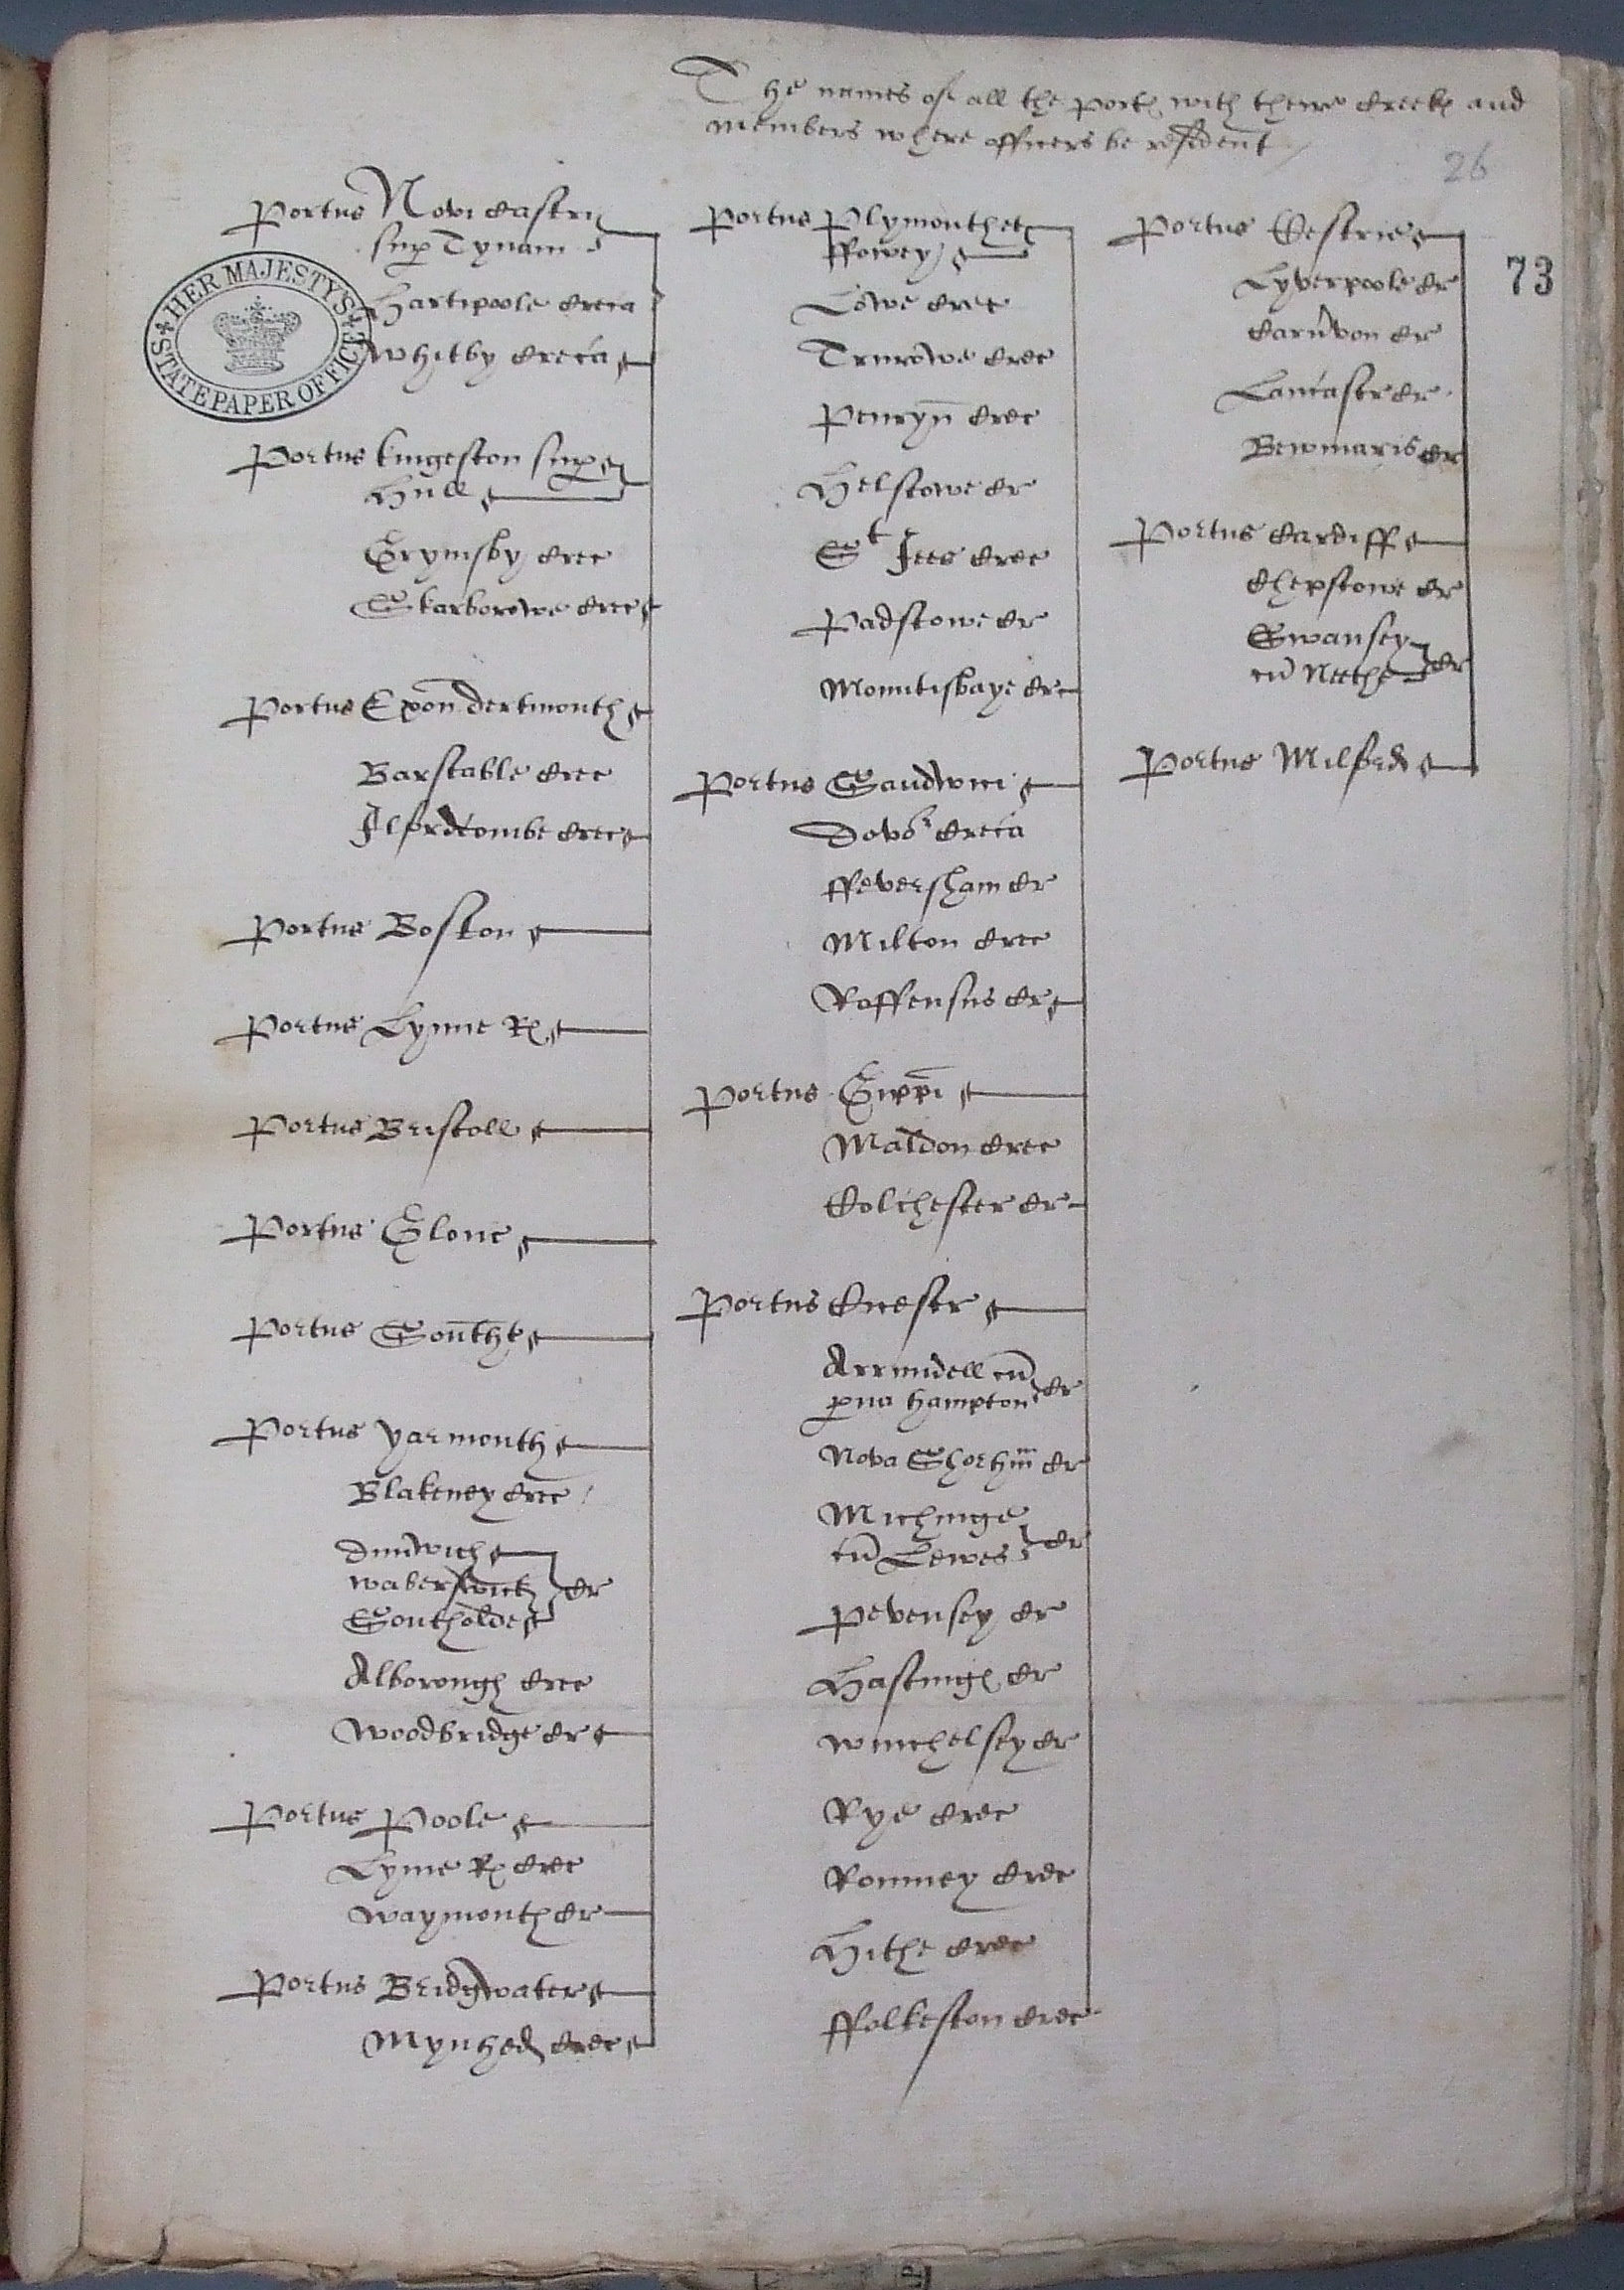 The names of all the portes with there Creekes and
members where officers be resident
26
73
HER MAJESTY'S
STATE PAPER OFFICE
Portus Novi Castri
sup Tynam
Hartipoole creca
Whitby creca
Portus Kingeston sup
Hull
Grymsby crec
Skarborowe crec
Portus Exon Dertmouth
Barstable crec
Ilfordcombe crec
Portus Boston
Portus Lynne R
Portus Bristoll
Portus Glouc
Portus Southt
Portus Yarmouth
Blakeney crec
Dunwich
Waberswick cr
Southolde
Alborough crec
Woodbridge cr
Portus Poole
Lyme R crec
Waymouth cr
Portus Bridgwater
Mynhed crec
Portus Plymouth et
ffowey
Lowe crec
Trurowe crec
Penryn crec
Helstowe cr
St Ies crec
Padstowe cr
Mountisbaye crec
Portus Sandwici
Dovor creca
ffeversham cr
Milton crec
Roffensus cr
Portus Gippi
Maldon crec
Colchester cr
Portus Cicestr
Arrundell cu
pua hampton cr
Nova Shorhm cr
Michinge
cu Lewes cr
Pevensey cr
Hastinges cr
Winchelsey cr
Rye crec
Romney crec
Hithe crec
ffolkeston crec
Portus Cestrie
Lyverpoole cr
Carnvon cr
Lancastr cr
Bewmaris cr
Portus Cardiff
Chepstowe cr
Swansey
cu Nethe cr
Portus Milford